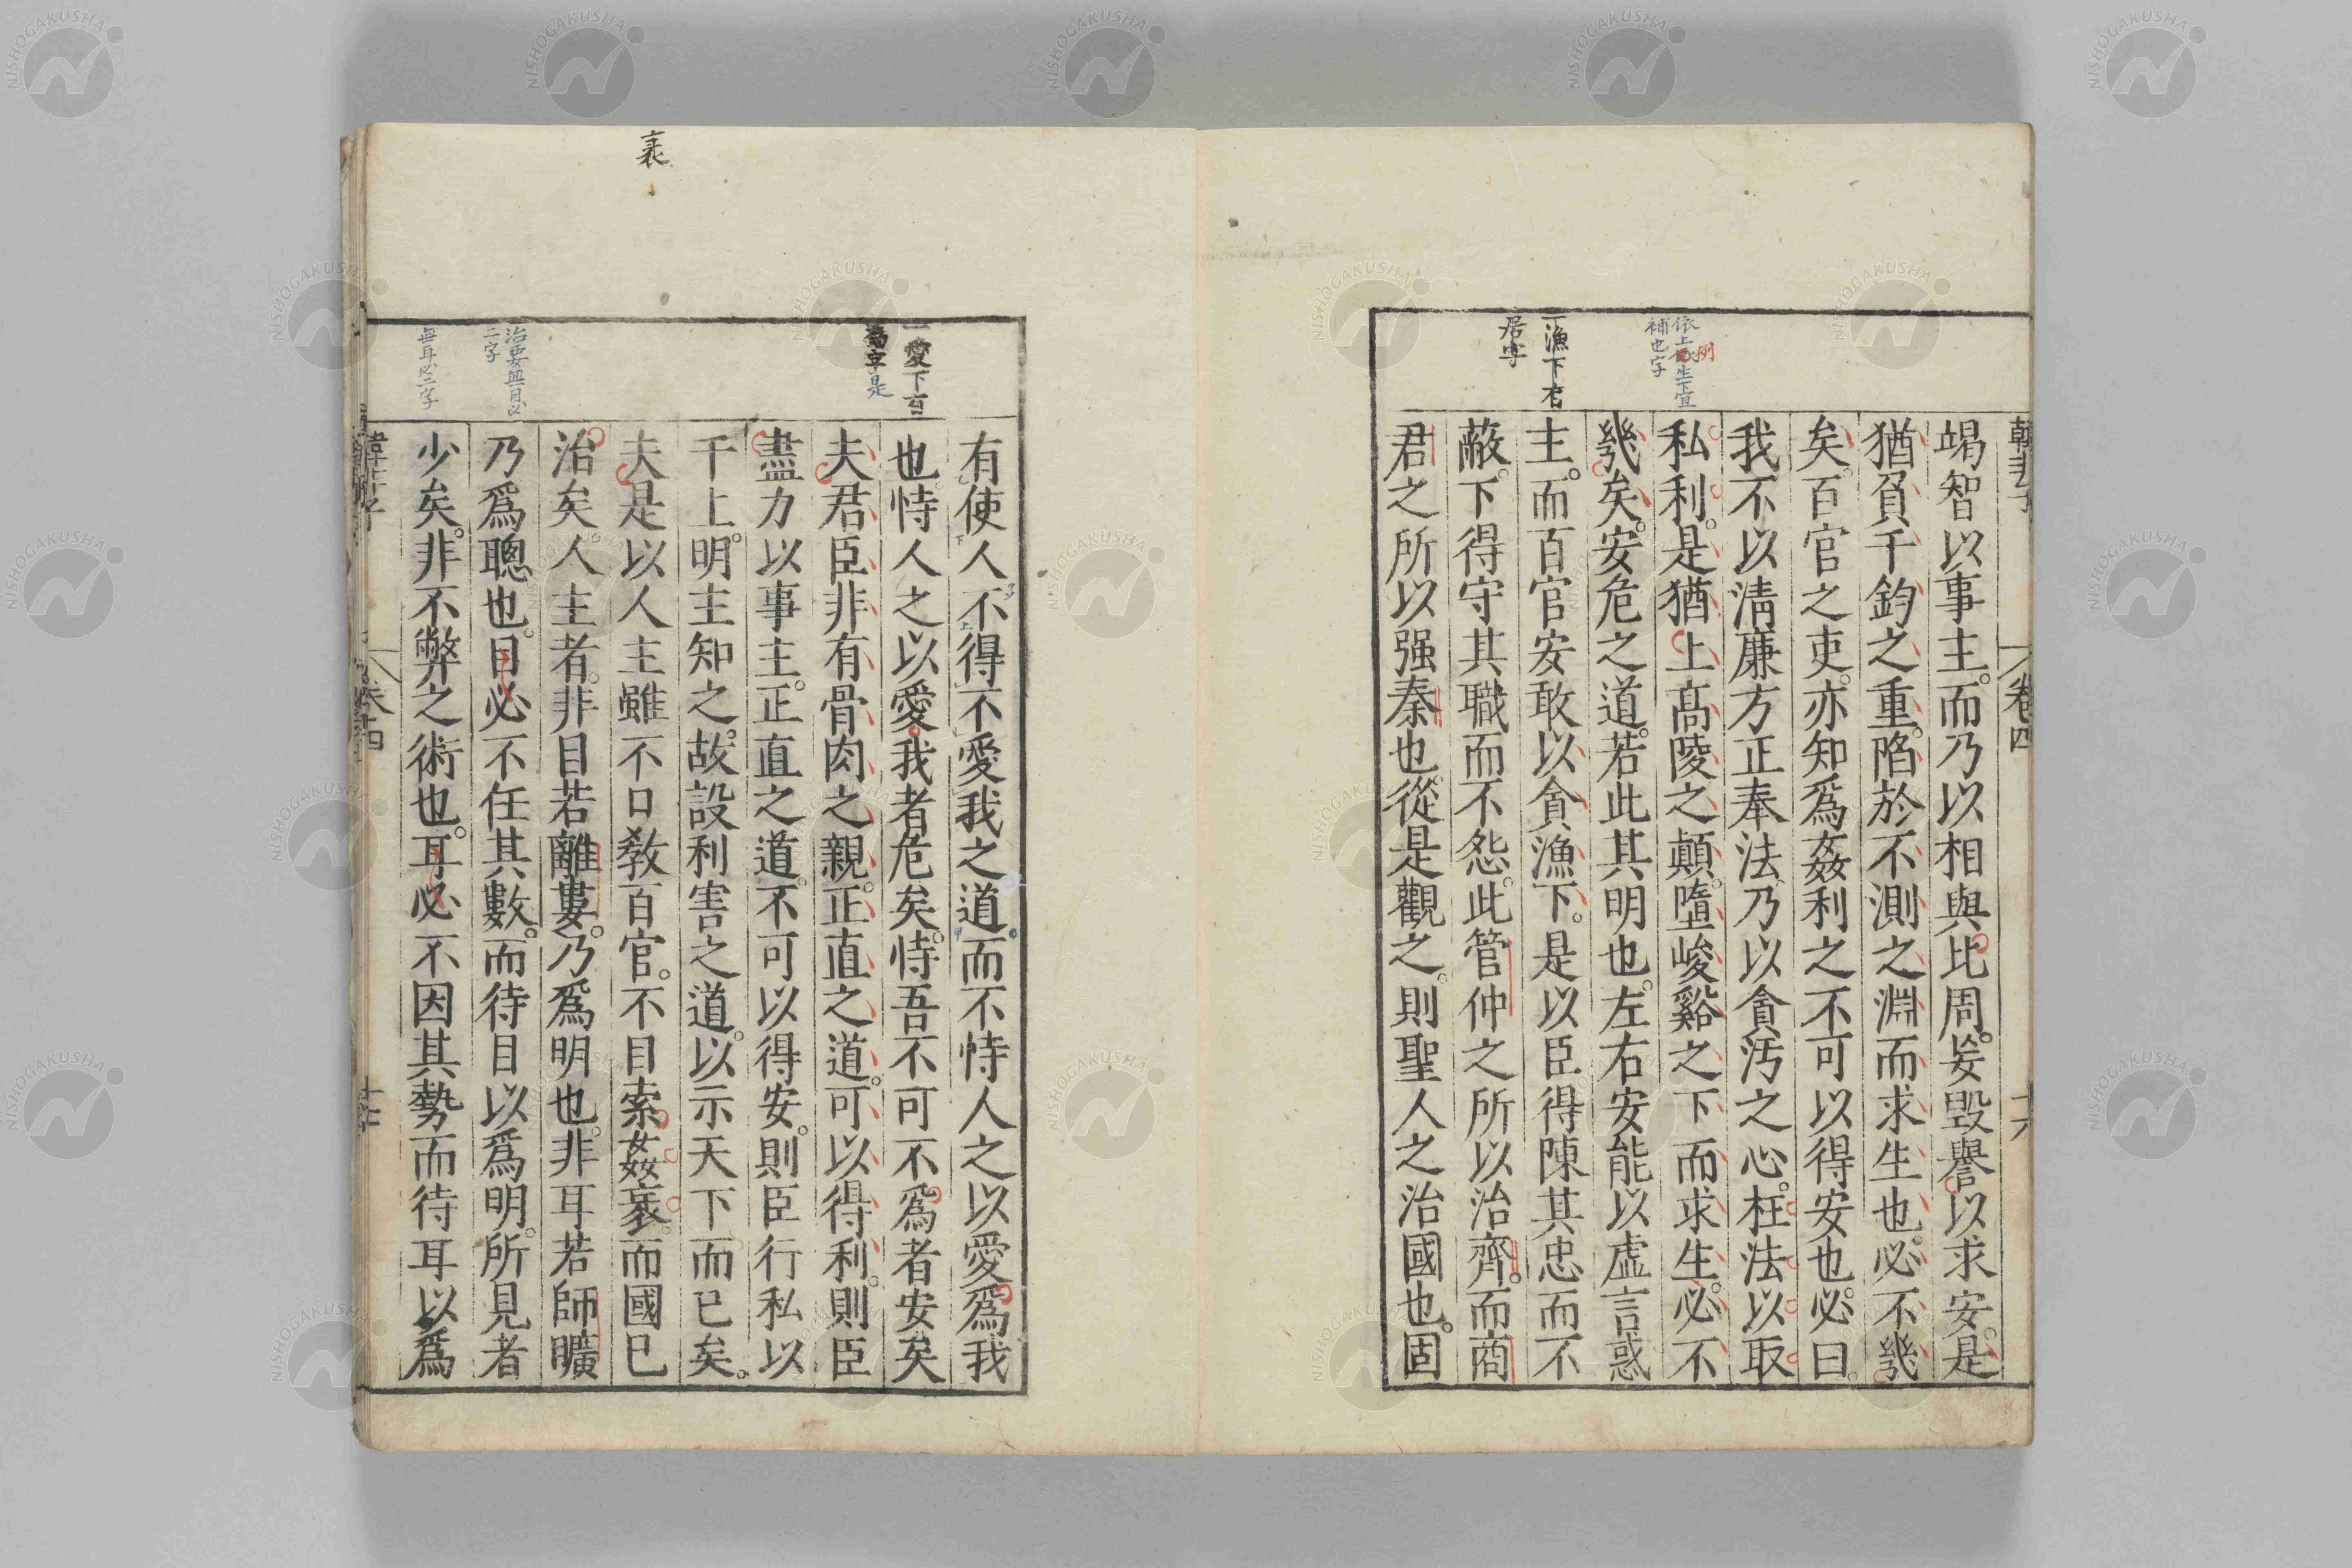 韓非子 卷四 十六
竭智以事主。而乃以相與比周。妄毀譽以求安。是
猶負千鈞之重。陷於不測之淵而求生也。必不幾
矣。百官之吏。亦知爲姦利之不可以得安也。必曰。
我不以淸廉方正奉法。乃以貪汚之心。枉法以取
私利。是猶上高陵之顚。墮峻谿之下而求生。必不
幾矣。安危之道。若此其明也。左右安能以虛言惑
主。而百官安敢以貪漁下。是以臣得陳其忠而不
蔽。下得守其職而不怨。此管仲之所以治齊。而商
君之所以强秦也。從是觀之。則聖人之治國也。固
補也字
漁下
居字
有使人不得不愛我之道。而不恃人之以愛爲我
也。恃人之以愛我者危矣。恃吾不可不爲者安矣
夫君臣非有骨肉之親。正直之道。可以得利。則臣
盡力以事主。正直之道。不可以得安。則臣行私以
干上。明主知之。故設利害之道。以示天下而已矣。
夫是以人主雖不口敎百官。不目索姦衺。而國已
治矣。人主者。非目若離婁。乃爲明也。非耳若師曠
乃爲聰也。目必不任其數。而待目以爲明。所見者
少矣。非不弊之術也。耳必不因其勢而待耳以爲
一愛下有
爲字是
衺
治要無目必
二字
無耳必二字
韓非子 卷四
NISHOGAKUSHA